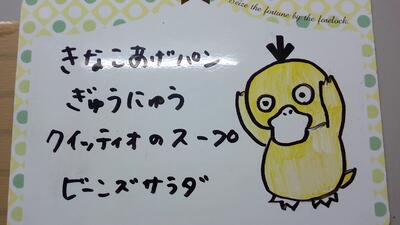 Seize the fortune by the forelock.
きなこあげパン
ぎゅうにゅう
クイッティオのスープ
ビーンズサラダ